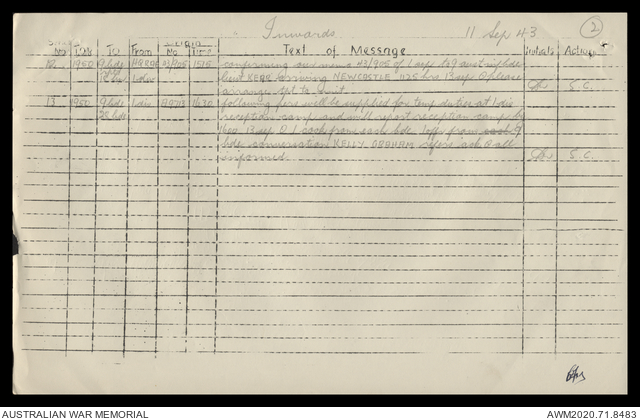 Inwards 11 Sep 43 2
Serial No Time To From Origin No Time Text of Message Initials Action
12 1950 9 bde HQRAE 43/905 1515 confirming our memo 43/905 of 1 sep to 9 aust inf bde
lieut KERR arriving NEWCASTLE 1125 hrs 13 sep please
arrange rpt to unit S.C.
13 1950 9 bde 1 div 1630 following pers will be supplied for temp duties at 1 div
28 bde reception camp and will report reception camp by
1600 13 sep 1 each from each bde from
bde conversation KELLY GRAHAM refers ack all
informed. S.C.
AUSTRALIAN WAR MEMORIAL AWM2020.71.8483